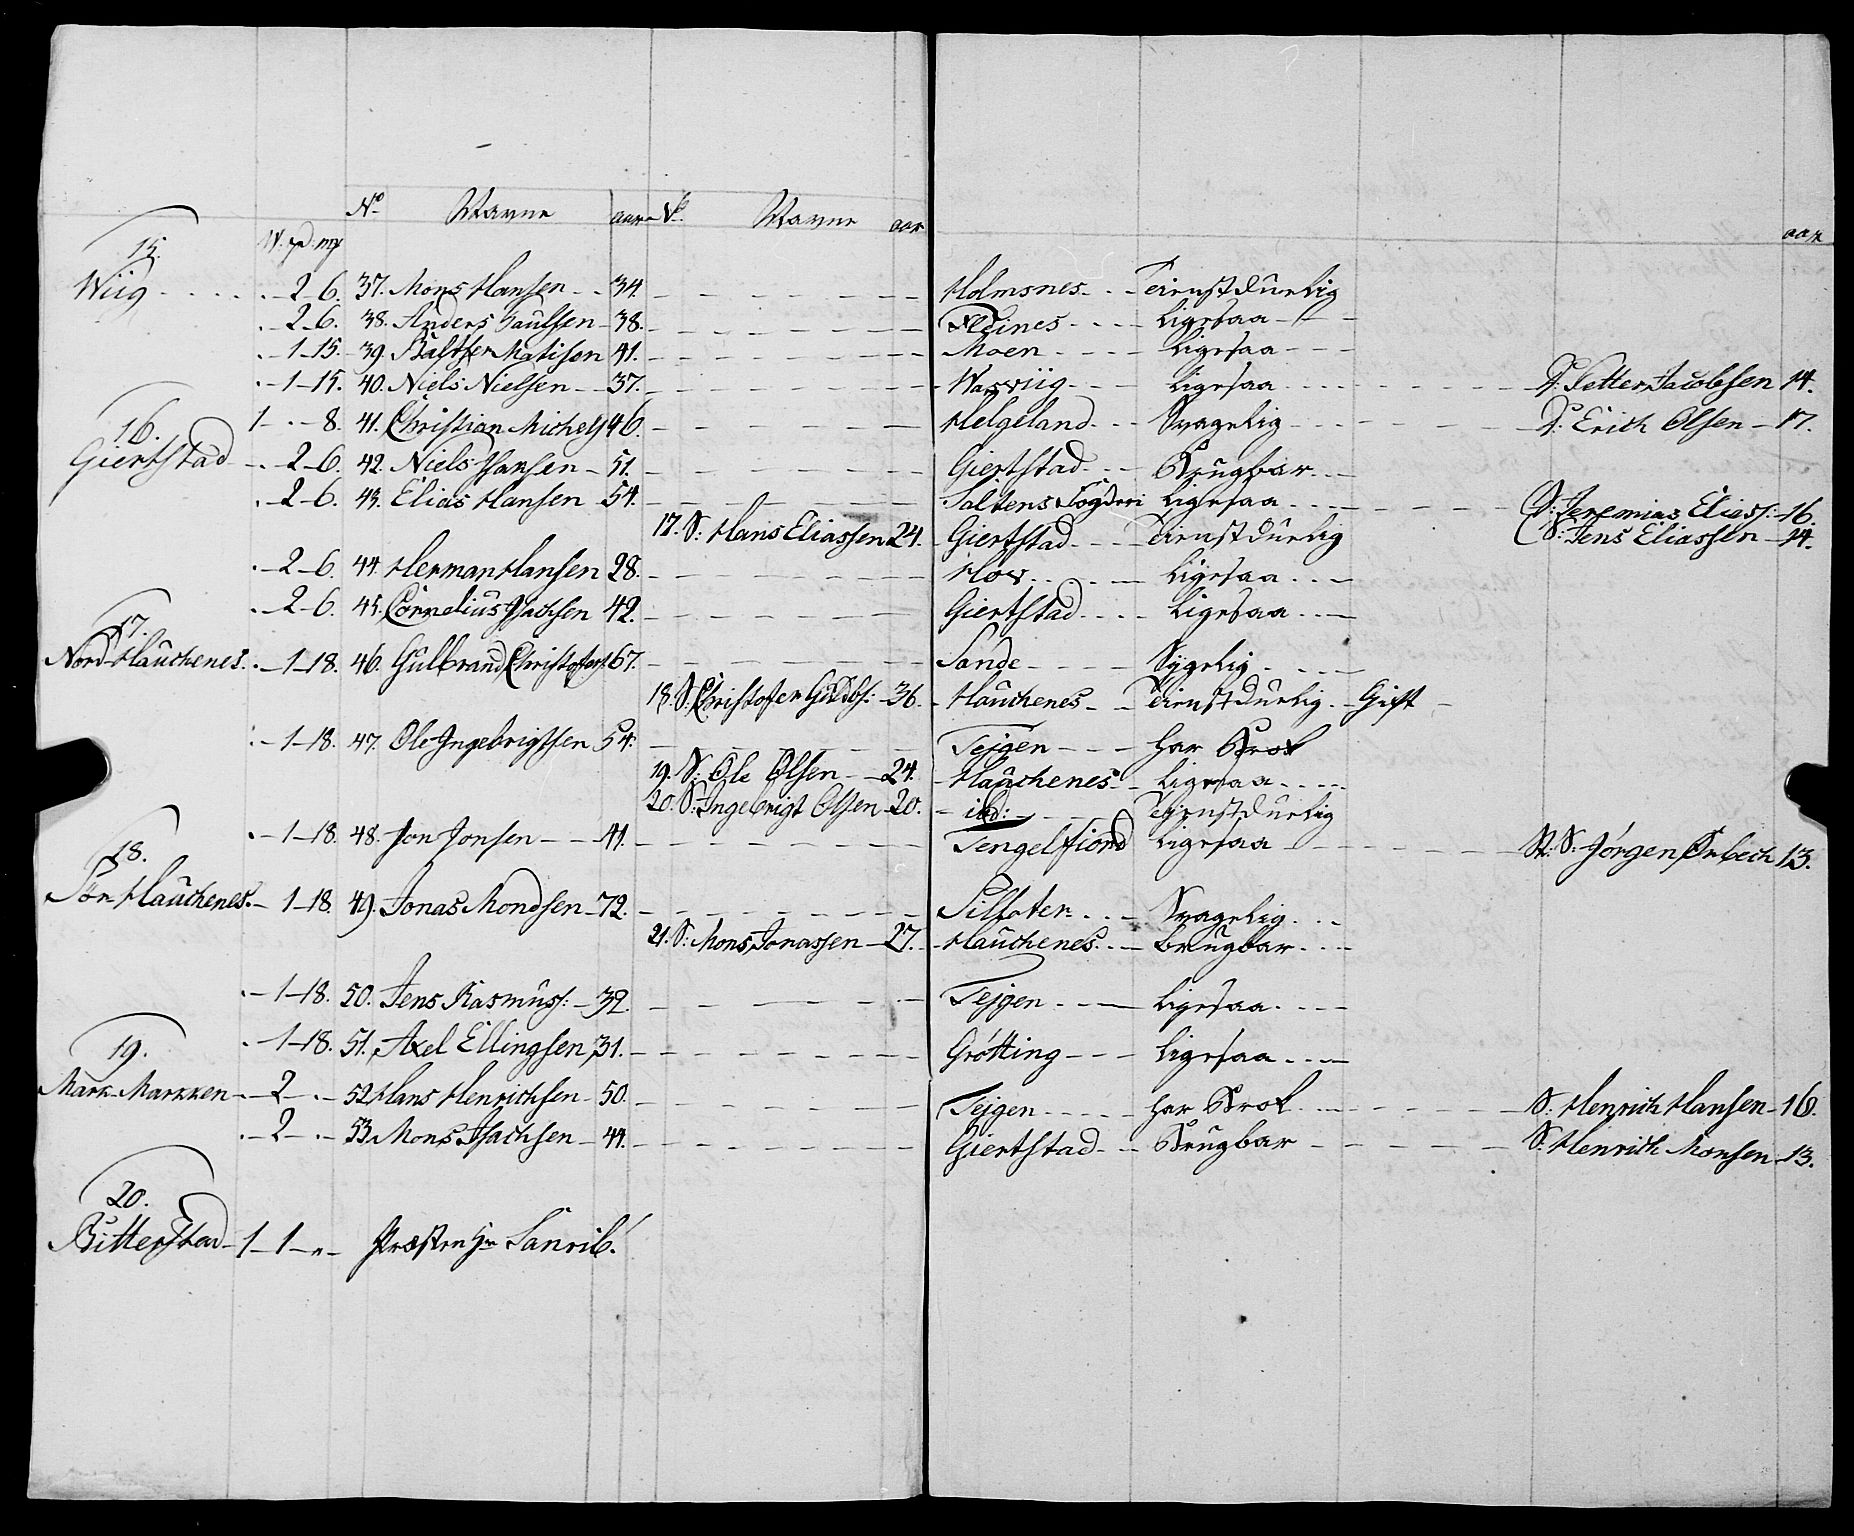 No Navne aar No Navne aar aar
15. W. pd. mk
Wiig - 2-6. 37. Mons Hansen - 34. Holmsnes - Tienstdüelig
- 2-6. 38. Anders Paulsen - 38. Fleines - Ligesaa
- 1-15. 39. Balster Matisen 41. Moen - Ligesaa
- 1-15. 40. Niels Nielsen - 37. Ligesaa - P: Petter Jacobsen 14.
16. 1 - - 8. 41. Christian Michels 46. Helgeland - Svagelig - P: Erich Olsen - 17.
Giertstad - 2-6. 42. Niels Hansen - 51. Giertstad - Brugbar
- 2-6. 43. Elias Hansen 54. Saltens Fogderi Ligesaa - S: Jeremias Eliass: 16.
17. S: Hans Eliassen 24. Giertstad - Tienstdüelig S: Jens Eliassen - 14.
- 2-6. 44. Herman Hansen 28. Hov - Ligesaa
- 2-6. 45. Cornelius Isachsen 42. Giertstad - Ligesaa
17.
Nord Hauchenes - 1-18. 46. Gulbrand Christofers: 67. Sande - Sygelig
18. S: Christofer Guldbs: - 36. Hauchenes - Tienstdüelig - Gift
- 1-18. 47. Ole Ingebrigtsen 54. Tejgen - har Brok
19. S: Ole Olsen - 24. Hauchenes - Ligesaa
20. S: Ingebrigt Olsen - 20. - ibd: - Tienstdüelig
- 1-18. 48. Jon Jonsen - 41. Tengelfiord Ligesaa - St: S: Jørgen Ørbech 13.
18.
Sør Hauchenes - 1-18. 49. Jonas Mondsen - 72. - Svagelig
21. S: Mons Jonassen - 27. Hauchenes - brugbar
- 1-18. 50. Jens Rasmuss: - 32. Tejgen - Ligesaa
- 1-18. 51. Axel Ellingsen 31. Grøtting - Ligesaa
19.
Mark Markken - 2 - - 52. Hans Henrichsen - 50. Tejgen - har Brok - S: Henrich Hansen - 16.
- 2 - - 53. Mons Isachsen - 44. Giertstad - Brugbar - S: Henrich Monsen - 13.
20.
Bitterstad - 1-1-"- Præsten Hr